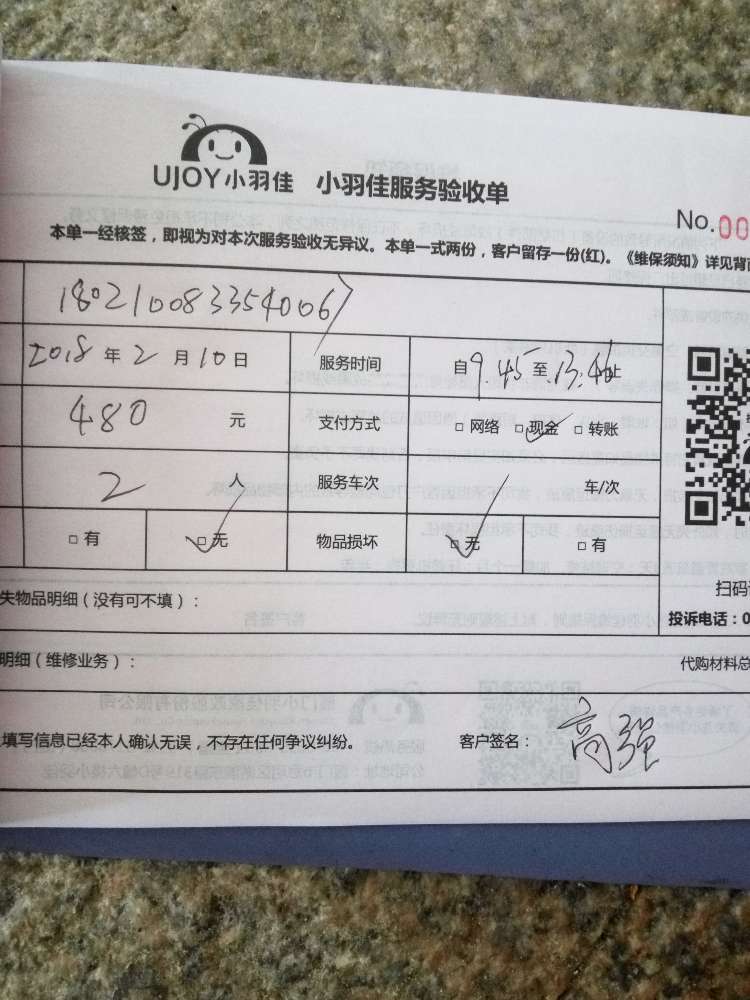 UJOY小羽佳 小羽佳服务验收单
No.00
本单一经核签，即视为对本次服务验收无异议。本单一式两份，客户留存一份(红)。《维保须知》详见背
180210083354006
2018年2月10日 服务时间 自9.45至13.46止
480 元 支付方式 □网络 □现金 □转账
2 人 服务车次 车/次
□有 □无 物品损坏 □无 □有
扫码
失物品明细（没有可不填）：
投诉电话：0
明细（维修业务）：
代购材料总
填写信息已经本人确认无误，不存在任何争议纠纷。 客户签名： 高强